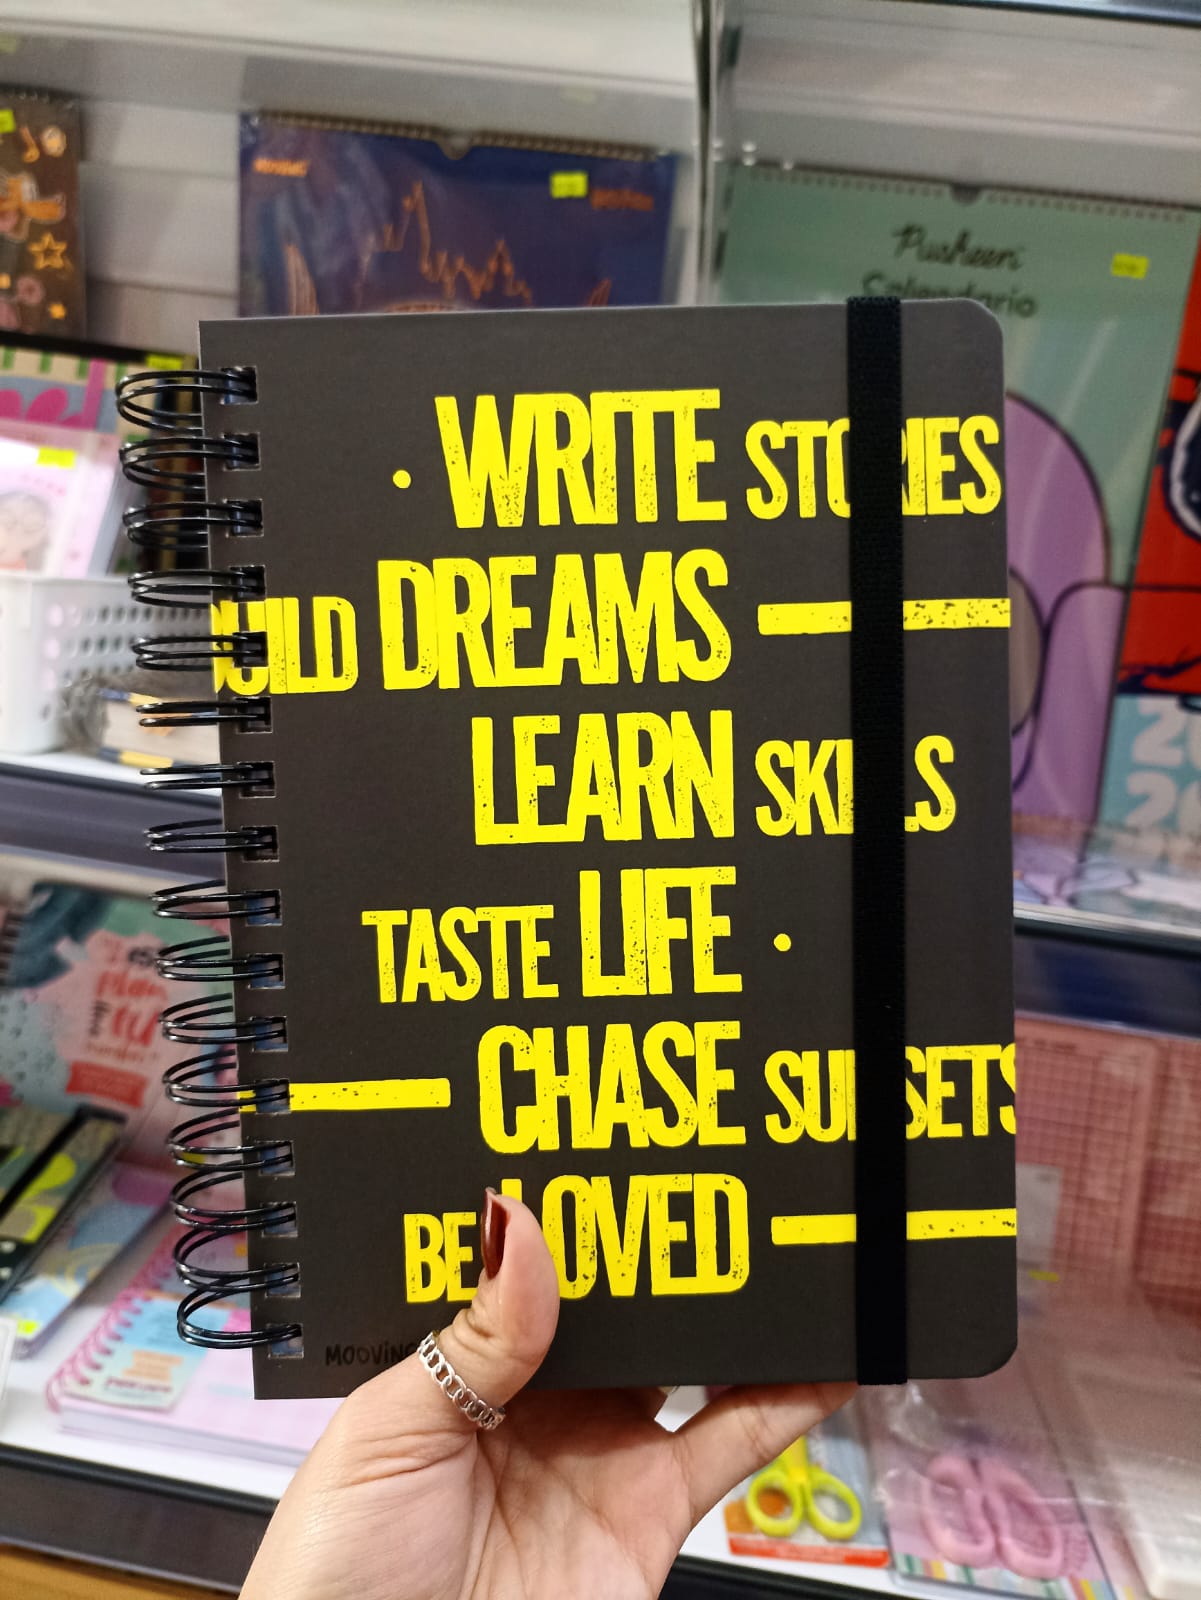 Pusheen
Calendario
· WRITE STORIES
BUILD DREAMS
LEARN SKILLS
TASTE LIFE ·
CHASE SUNSETS
BE LOVED
MOOVING